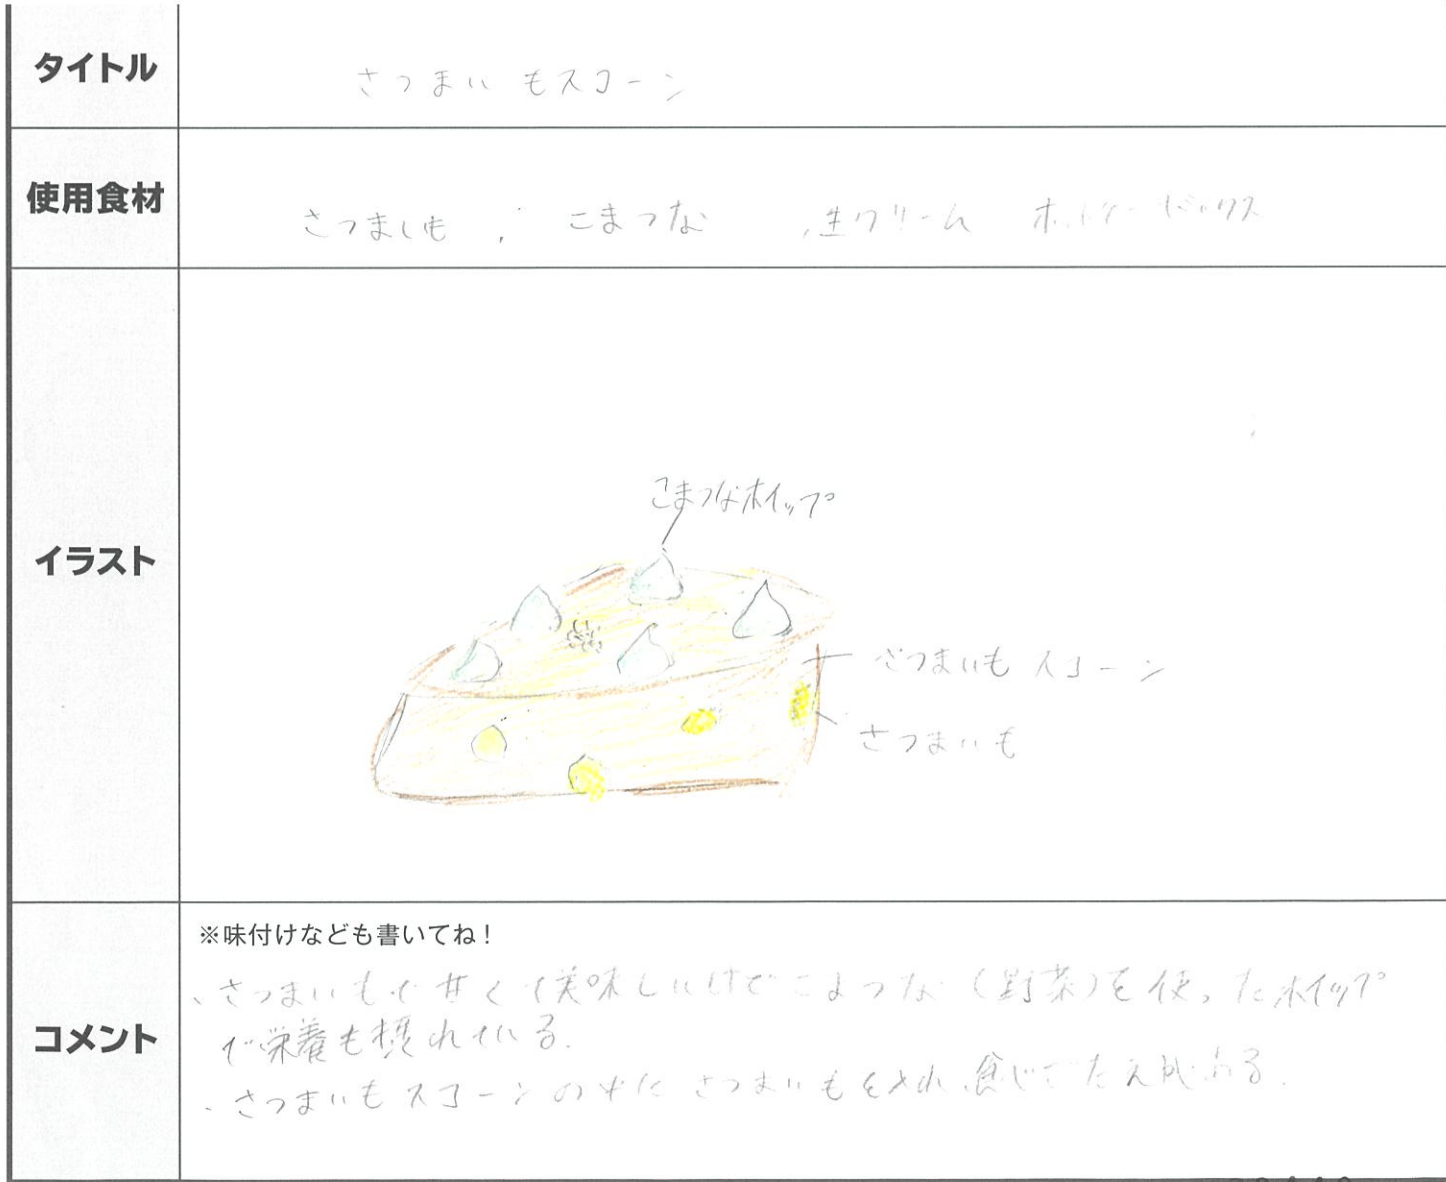 タイトル
さつまいもスコーン
使用食材
さつまいも , こまつな ,生クリーム ホットケーキミックス
イラスト
こまつなホイップ
さつまいもスコーン
さつまいも
コメント
※味付けなども書いてね！
・さつまいもで甘くて美味しいけどこまつな(野菜)を使ったホイップ
で栄養も摂れている.
・さつまいもスコーンの中にさつまいもを入れ、食べごたえがある.